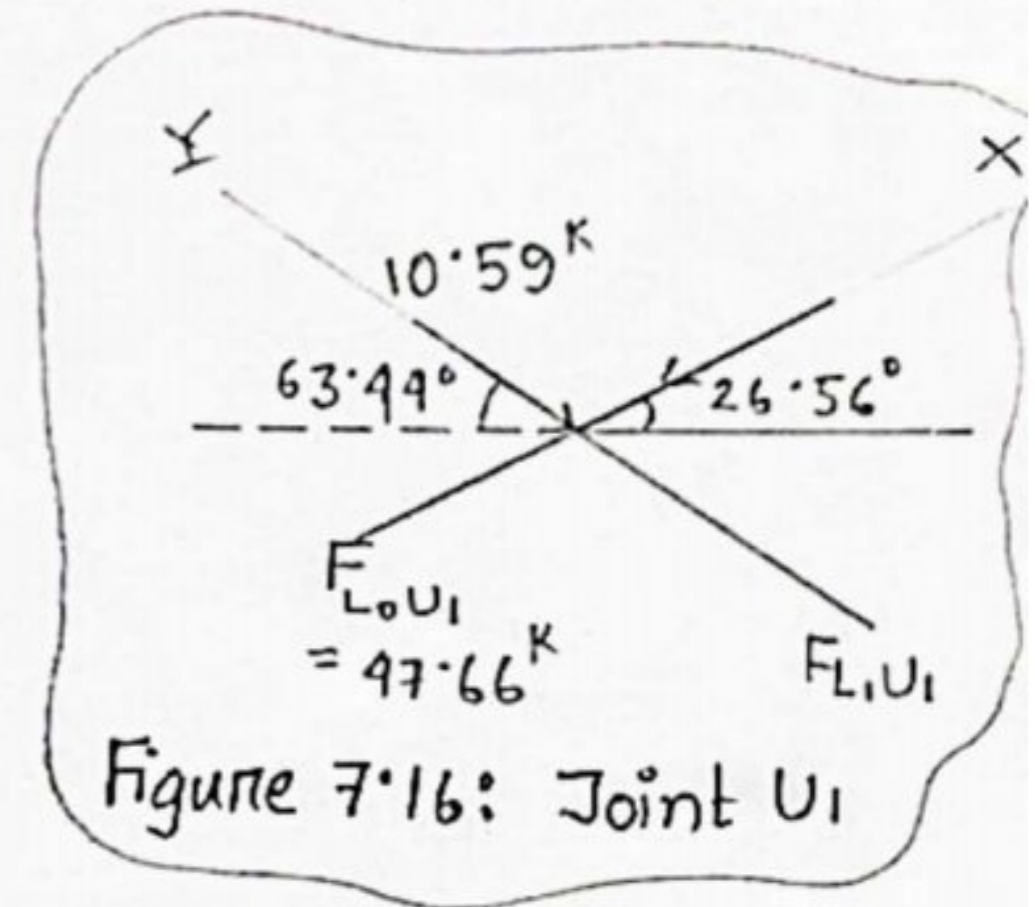 Y X
10·59 K
63·44° 26·56°
F L₀U₁
= 47·66 K
F L₁U₁
Figure 7·16: Joint U₁